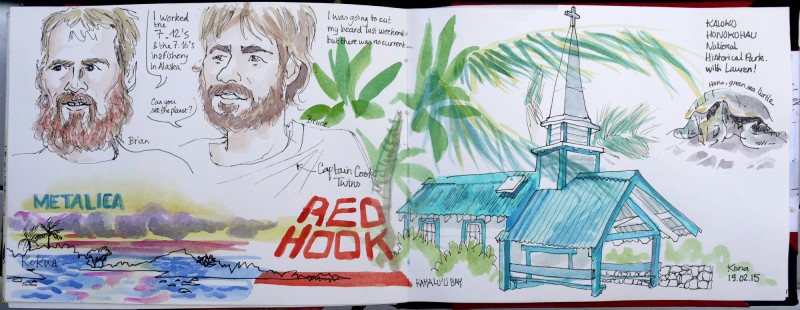 I worked
the
7-12's
& the 7.16's
in a Fishery
in Alaska
Can you
see the planet?
Brian
I was going to cut
my beard last weekend
but there was no current...
Bruce
Captain Cook
Twins
METALICA
Kokua
RED
HOOK
KAHALU'U BAY
KALOKO
HONOKOHAU
National
Historical Park.
with Lauren!
Honu, green sea turtle
Kona
19.02.15